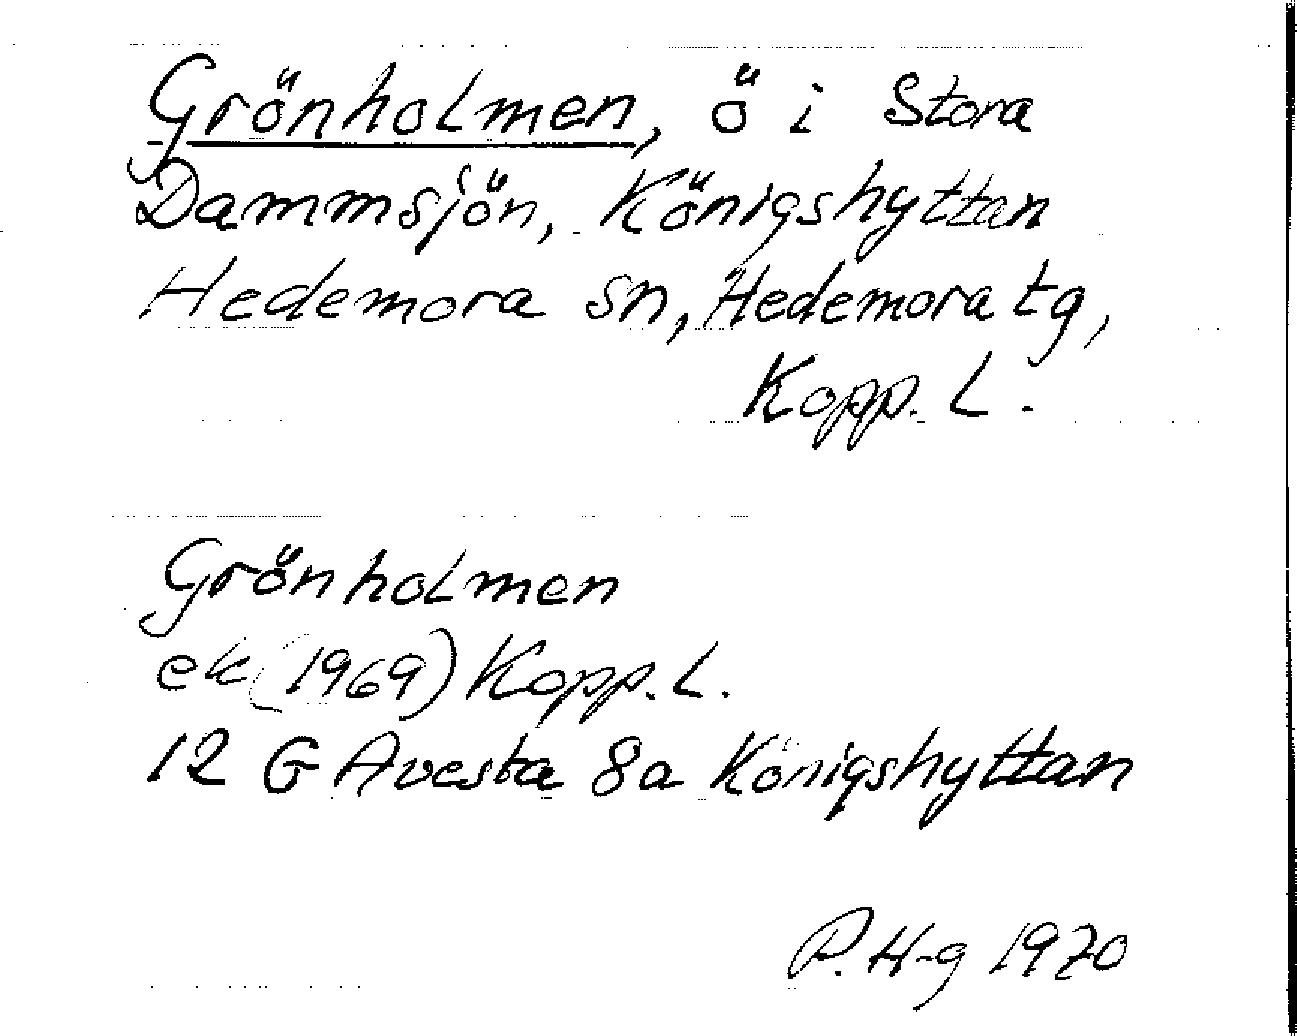 Grönholmen, ö i Stora
Dammsjön, Königshyttan
Hedemora sn, Hedemora tg,
Kopp. L.
Grönholmen
ek (1969) Kopp. L.
12 G Avesta 8a Königshyttan
P. H-g 1970